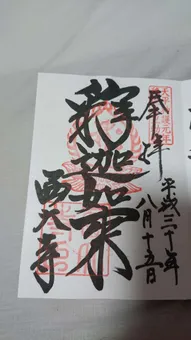 奉拝
平成三十年
八月十五日
釋迦如来
西大寺